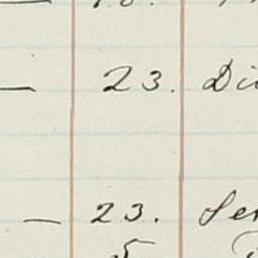 — 23. Di
— 23. Ser
5